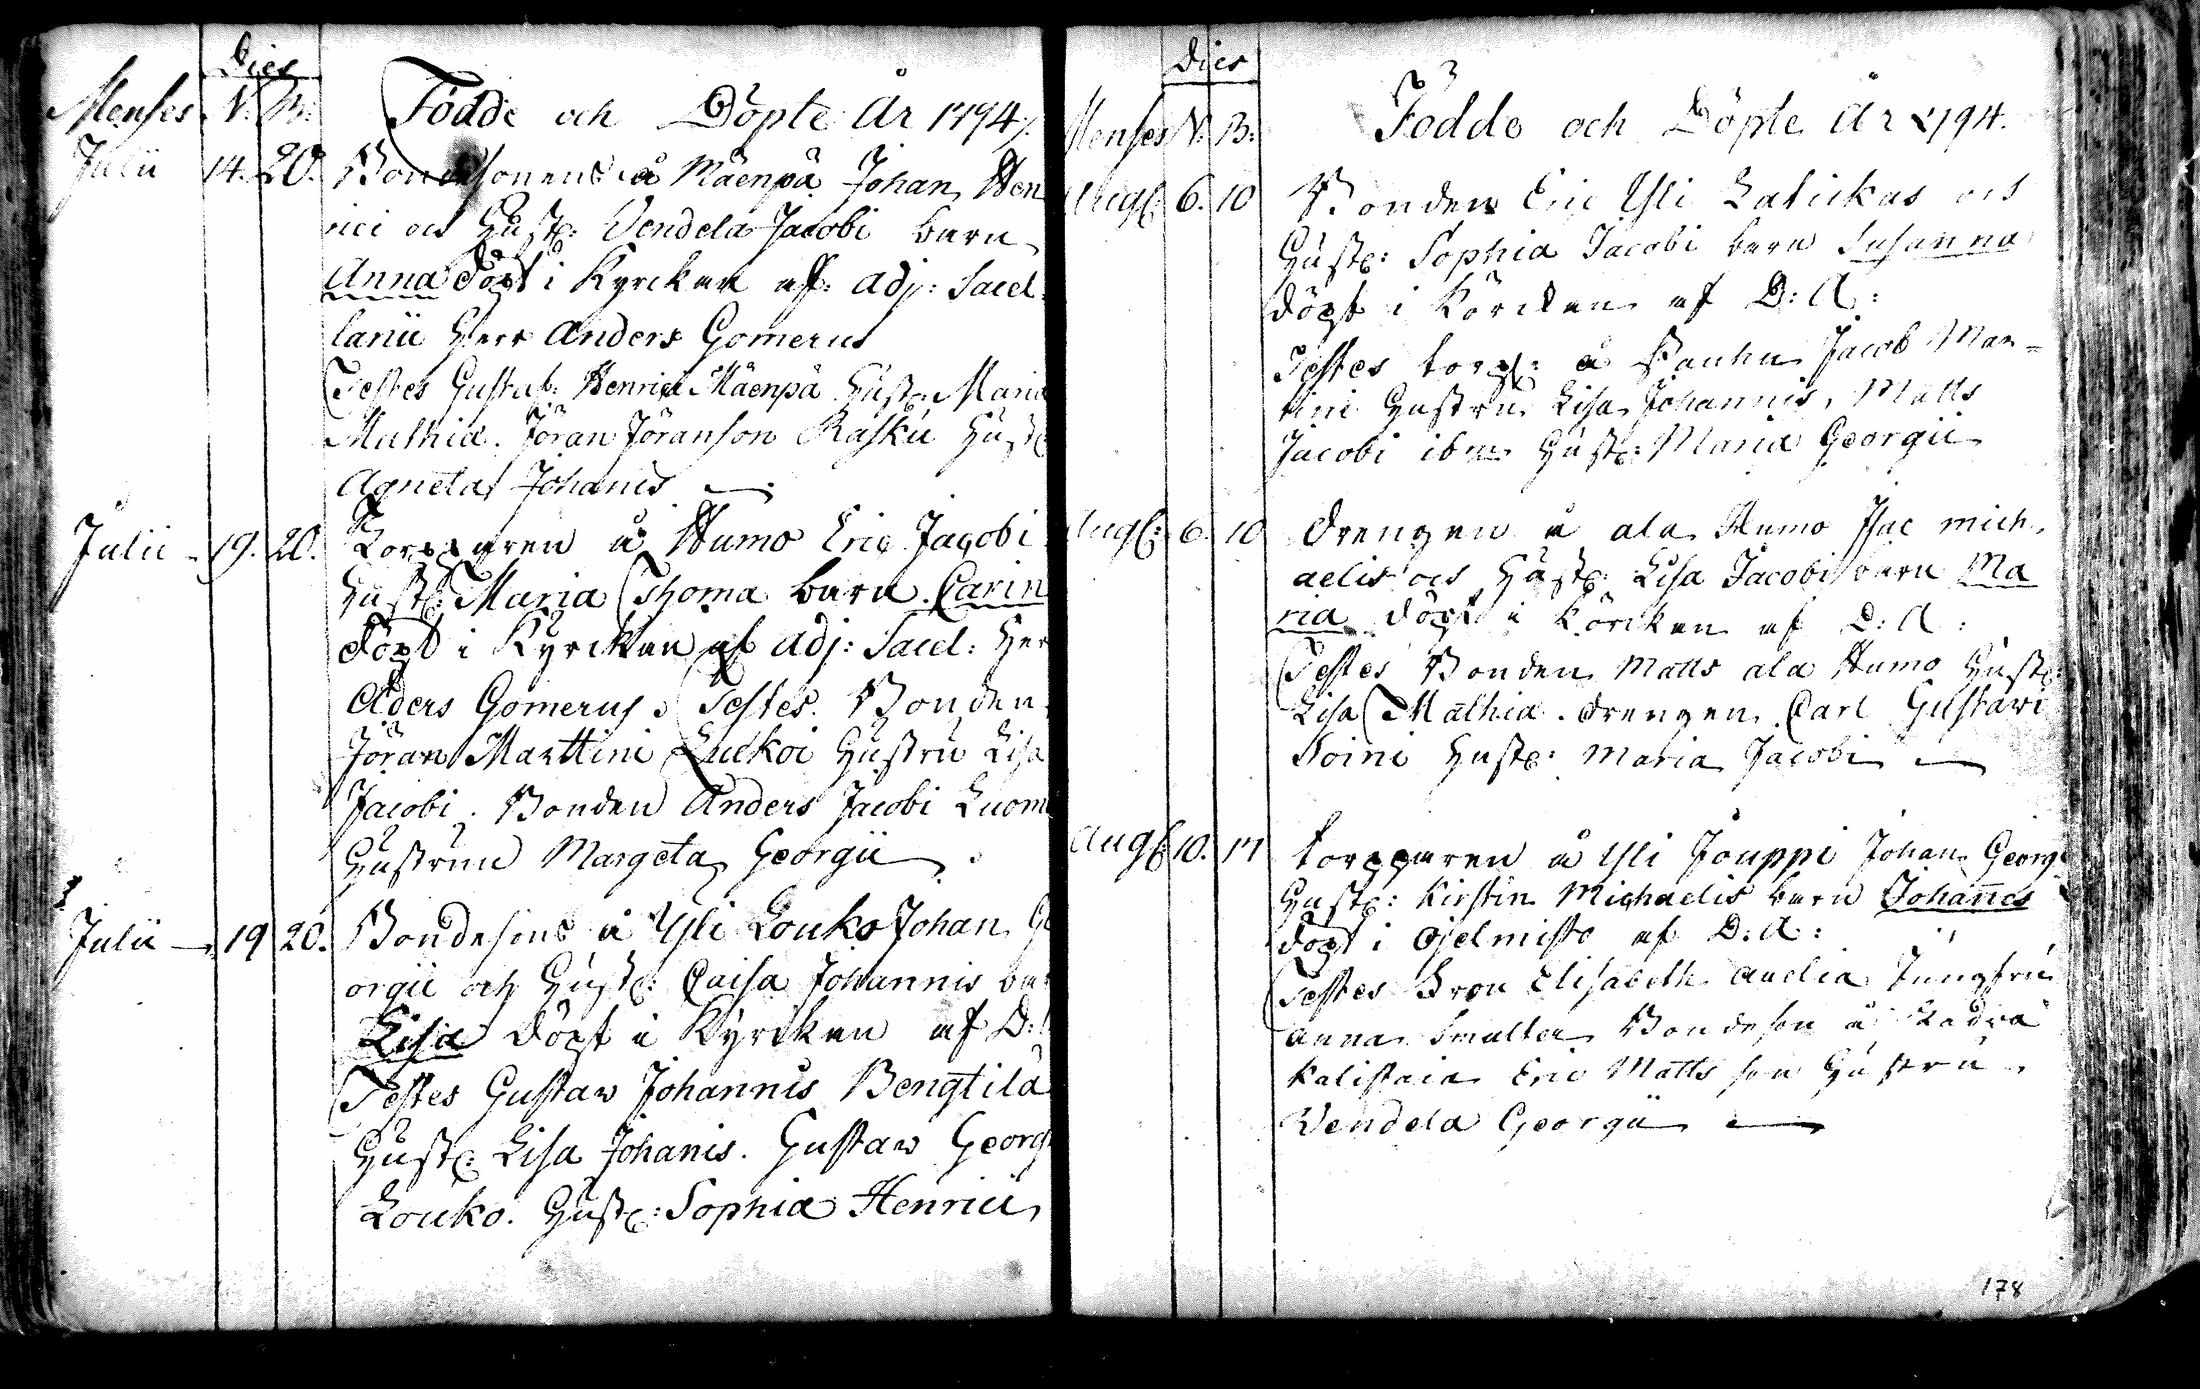 Dies
Menses N. B.
Födde och Döpte År 1794
Julii 14. 20. Bondesonens å Mäenpä Johan Hen
rici och Hustr: Vendela Jacobi barn
Anna Döpt i Kyrckan af: Adj: Sacel
lanii Herr Anders Gomerus
Testes Gustaf: Henrici Mäenpä Hustr: Maria
Mathiæ. Jöran Jöranson Rasku Hustr
Agneta Johanis
Julii 19. 20. Torpparen å Humo Eric Jacobi
Hustr: Maria Thomæ barn Carin
Döpt i Kyrckan af Adj: Sacel: Her
Aders Gomerus. Testes. Bonden
Jöran Marttini Luckoi Hustru Lisa
Jacobi. Bonden Anders Jacobi Luom
Hustrun Margeta Georgii
Julii 19 20. Bondesons å Yli Louko Johan Ge
orgii och Hustr: Caisa Johannis bar
Lisa Döpt i Kyrckan af D:
Testes Gustav Johannis Bengtilä
Hustr: Lisa Johanis. Gustav Georg
Louko. Hustr: Sophia Henrici
Dies
Menses N. B:
Födde och Döpte År 1794.
Augs: 6. 10 Bonden Eric Yli Latickas och
Hustr: Sophia Jacobi barn Susanna
Döpt i Körckan af D: A:
Testes torp: å Jacob Mar=
tini Hustru Lisa Johannis, Matts
Jacobi ibm Hustr: Maria Georgii
Augs: 6. 10 Drengen å ala Humo Isac mich
aelis och Hustr: Lisa Jacobi barn Ma
ria Döpt i Körckan af D: A:
Testes Bonden Matts ala Humo Hustr:
Lisa Mathiæ. Drengen Carl Gustavi
Soini Hustr: Maria Jacobi
Augs: 10. 17 torpparen å Yli Jouppi Johan Georg
Hustr: Kirstin Michaelis barn Johannes
Döpt i Ojelmisto af D: A:
Testes Elisabeth Jungfru
Anna Smalten Bondeson å
Kalistaia Eric Matts son Hustru
Vendela Georgii
178